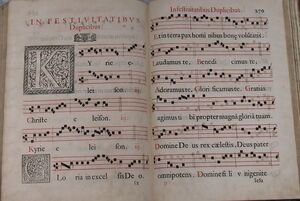 IN FESTIVITATIBUS
Duplicibus.
K Yrie e-
leison.
Christe e leison.
Kyrie e leison.
G Loria in excelsis Deo.
Et
In festiuitatibus Duplicibus.
Et in terra pax hominibus bonę volũtatis.
Laudamus te, Benedicimus te,
Adoramus te, Glorificamus te. Gratias
agimus tibi propter magnã gloriã tuam.
Domine Deus rex cælestis, Deus pater
omnipotens. Domine fili vnigenite
Iesu